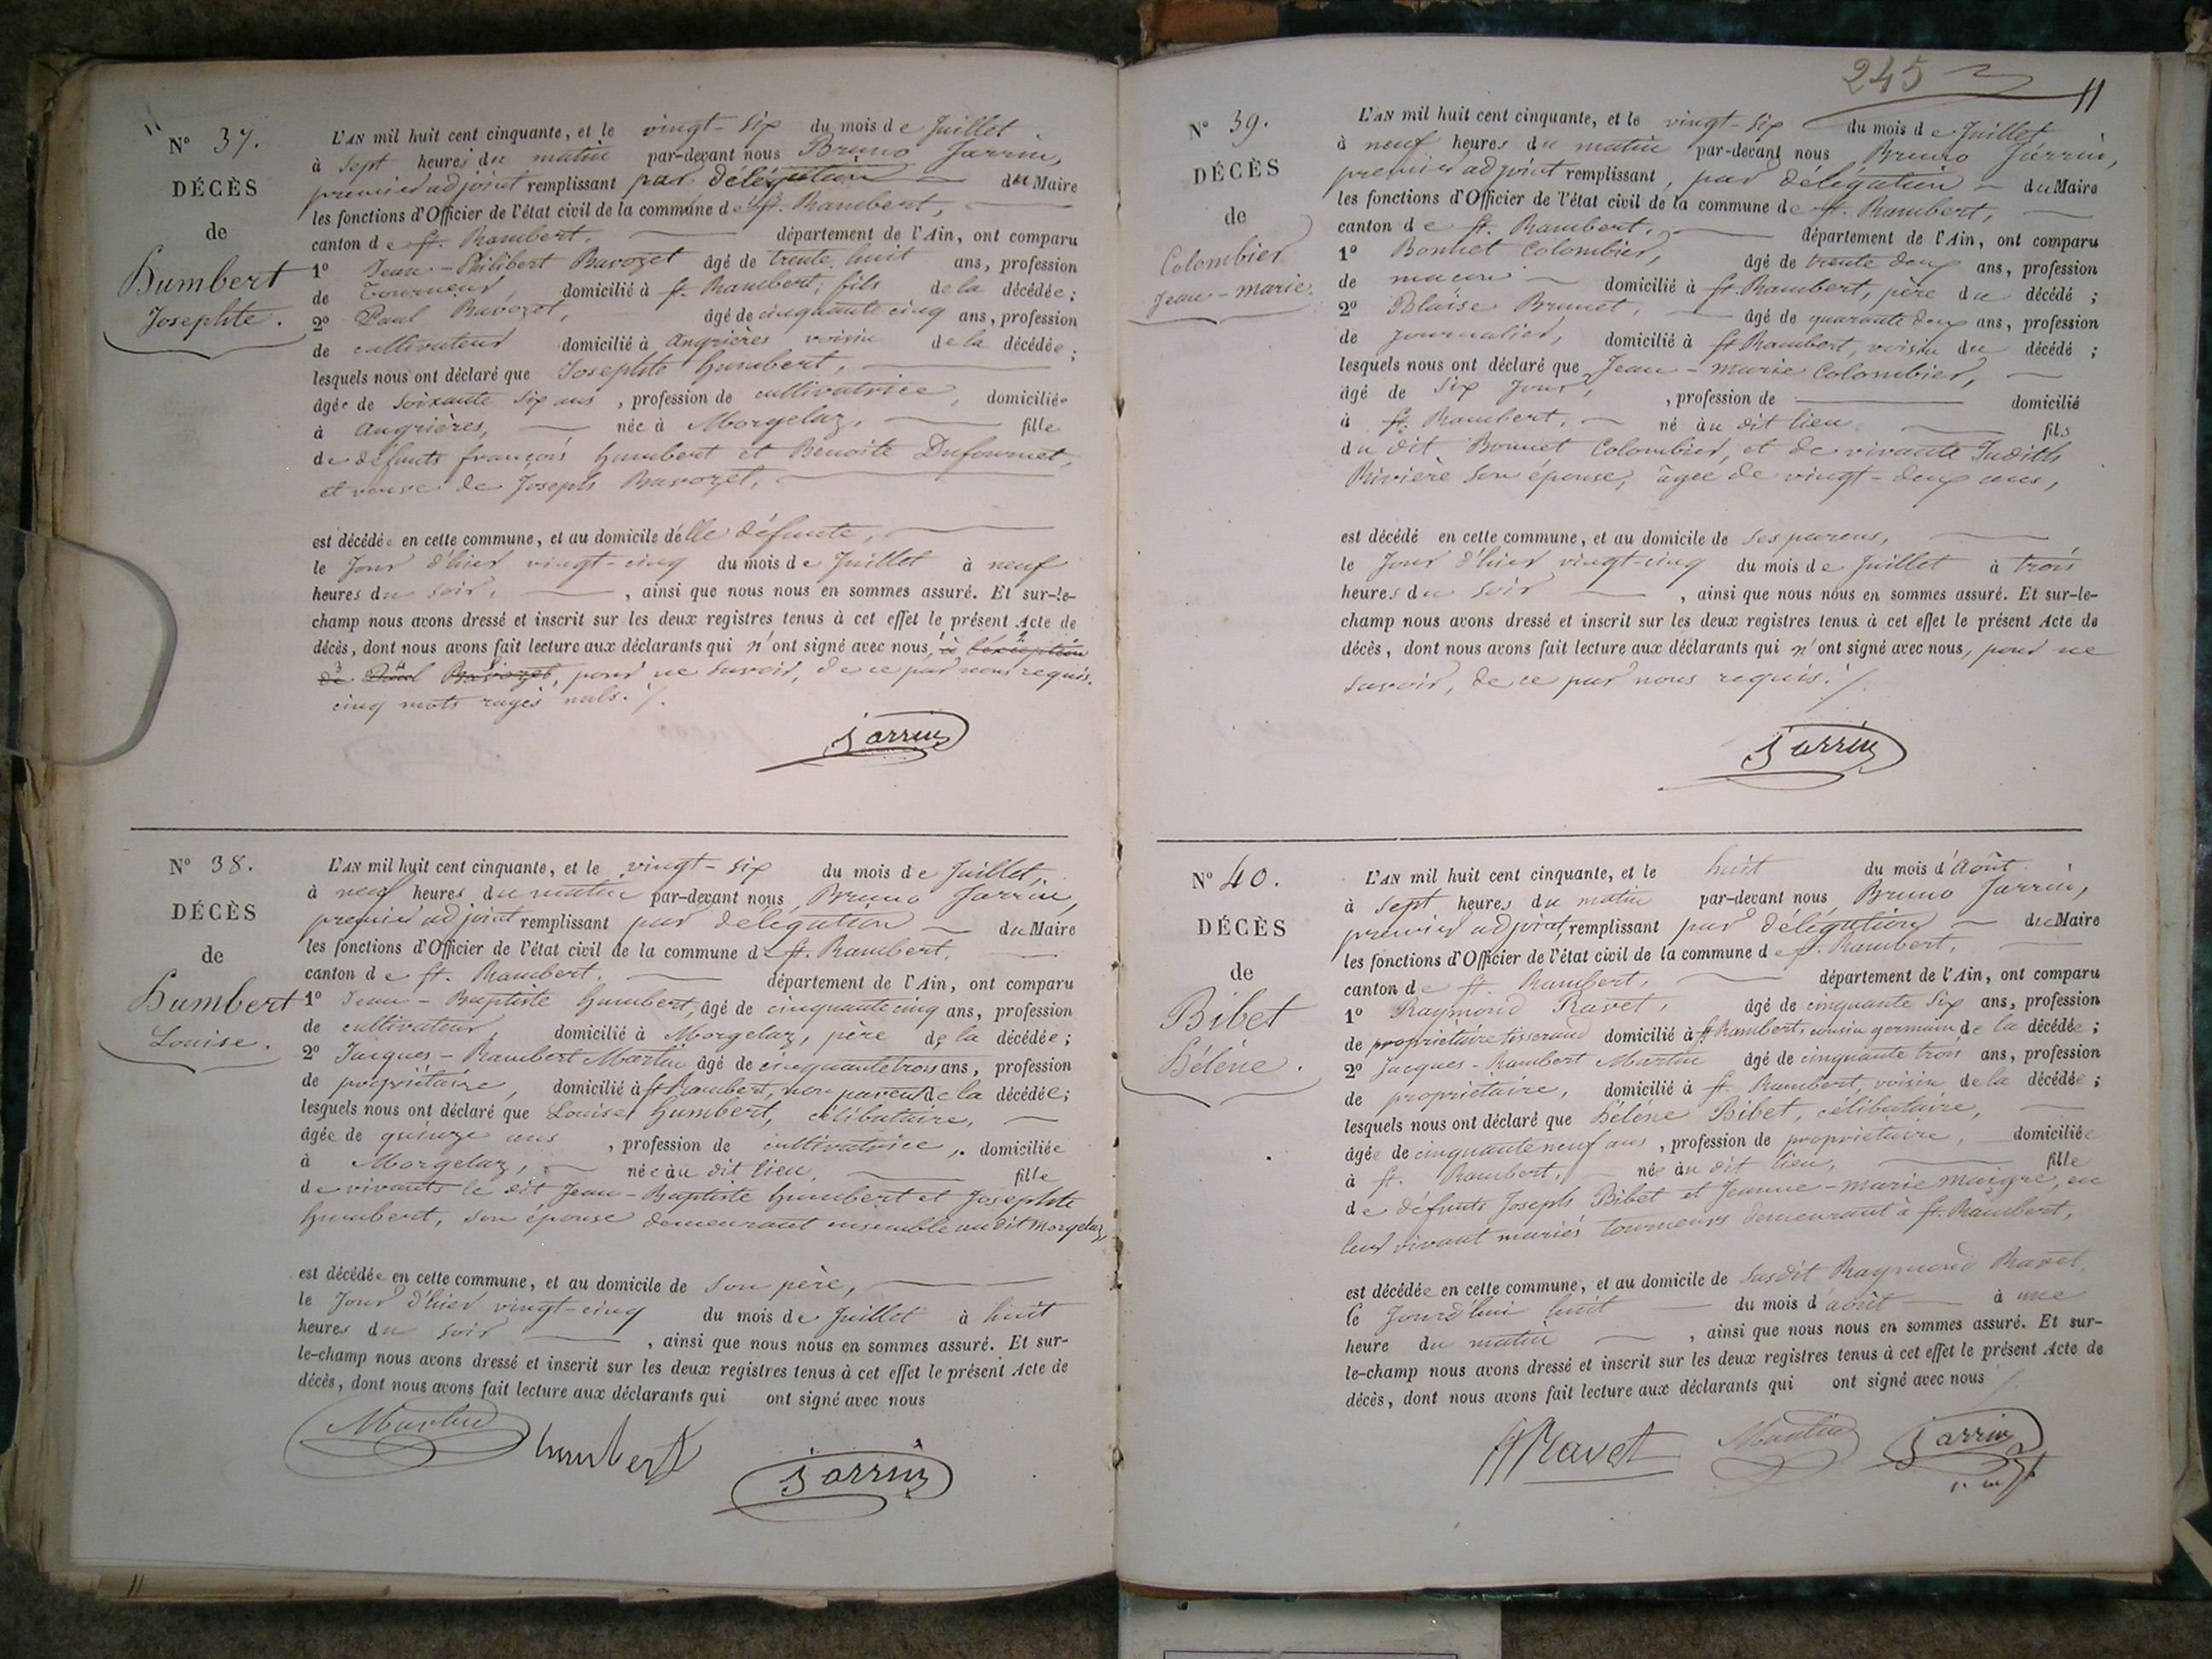 N° 37.
DÉCÈS
de
Humbert
Josephte.
L'AN mil huit cent cinquante, et le vingt-six du mois de Juillet
à sept heures du matin par-devant nous Bruno Jarrin,
premier adjoint remplissant par délégation du Maire
les fonctions d'Officier de l'état civil de la commune de St. Rambert,
canton de St. Rambert, département de l'Ain, ont comparu
1° Jean-Philibert Bavozet âgé de trente huit ans, profession
de Tourneur, domicilié à St. Rambert, fils de la décédée;
2° Paul Bavozet, âgé de cinquante cinq ans, profession
de cultivateur domicilié à Angrières voisin de la décédée;
lesquels nous ont déclaré que Josephte humbert,
âgée de soixante six ans, profession de cultivatrice, domiciliée
à Angrières, née à Morgelaz, fille
de défunts françois humbert et Benoite Dufournet,
et veuve de Joseph Bavozet,
est décédée en cette commune, et au domicile d'elle défunte,
le Jour d'hier vingt-cinq du mois de Juillet à neuf
heures du soir, ainsi que nous nous en sommes assuré. Et sur-le-
champ nous avons dressé et inscrit sur les deux registres tenus à cet effet le présent Acte de
décès, dont nous avons fait lecture aux déclarants qui n'ont signé avec nous, à l'exception
de Paul Bavozet, pour ne savoir, de ce par nous requis.
cinq mots rayés nuls./.
Jarrin
N° 38.
DÉCÈS
de
Humbert
Louise.
L'AN mil huit cent cinquante, et le vingt-six du mois de Juillet,
à neuf heures du matin par-devant nous, Bruno Jarrin,
premier adjoint remplissant par délégation du Maire
les fonctions d'Officier de l'état civil de la commune de St. Rambert,
canton de St. Rambert, département de l'Ain, ont comparu
1° Jean-Baptiste humbert, âgé de cinquante cinq ans, profession
de cultivateur, domicilié à Morgelaz, père de la décédée;
2° Jacques-Rambert Martin âgé de cinquante trois ans, profession
de propriétaire, domicilié à St Rambert, non parent de la décédée;
lesquels nous ont déclaré que Louise humbert, célibataire,
âgée de quinze ans, profession de cultivatrice, domiciliée
à Morgelaz, née au dit lieu, fille
de vivants le dit Jean-Baptiste humbert et Josephte
humbert, son épouse demeurant ensemble au dit Morgelaz,
est décédée en cette commune, et au domicile de son père,
le Jour d'hier vingt-cinq du mois de Juillet à huit
heures du soir, ainsi que nous nous en sommes assuré. Et sur-
le-champ nous avons dressé et inscrit sur les deux registres tenus à cet effet le présent Acte de
décès, dont nous avons fait lecture aux déclarants qui ont signé avec nous
Martin humbert Jarrin
245
11
N° 39.
DÉCÈS
de
Colombier
Jean-marie.
L'AN mil huit cent cinquante, et le vingt-six du mois de Juillet
à neuf heures du matin par-devant nous Bruno Jarrin,
premier adjoint remplissant, par délégation du Maire
les fonctions d'Officier de l'état civil de la commune de St. Rambert,
canton de St. Rambert, département de l'Ain, ont comparu
1° Bonnet Colombier, âgé de trente deux ans, profession
de maçon domicilié à St. Rambert, père du décédé;
2° Blaise Brunet, âgé de quarante deux ans, profession
de Journalier, domicilié à St Rambert, voisin du décédé;
lesquels nous ont déclaré que Jean-marie Colombier,
âgé de six Jour, profession de domicilié
à St. Rambert, né au dit lieu, fils
du dit Bonnet Colombier, et de vivante Judith
Rivière son épouse, âgée de vingt-deux ans,
est décédé en cette commune, et au domicile de ses parens,
le Jour d'hier vingt-cinq du mois de Juillet à trois
heures du soir, ainsi que nous nous en sommes assuré. Et sur-le-
champ nous avons dressé et inscrit sur les deux registres tenus à cet effet le présent Acte de
décès, dont nous avons fait lecture aux déclarants qui n'ont signé avec nous, pour ne
savoir, de ce par nous requis./.
Jarrin
N° 40.
DÉCÈS
de
Bibet
Hélène.
L'AN mil huit cent cinquante, et le huit du mois d'Août
à sept heures du matin par-devant nous, Bruno Jarrin,
premier adjoint remplissant par délégation du Maire
les fonctions d'Officier de l'état civil de la commune de St. Rambert,
canton de St. Rambert, département de l'Ain, ont comparu
1° Raymond Ravet, âgé de cinquante six ans, profession
de propriétaire tisserand domicilié à St Rambert, cousin germain de la décédée;
2° Jacques-Rambert Martin âgé de cinquante trois ans, profession
de propriétaire, domicilié à St. Rambert, voisin de la décédée;
lesquels nous ont déclaré que Hélène Bibet, célibataire,
âgée de cinquante neuf ans, profession de propriétaire, domiciliée
à St. Rambert, née au dit lieu, fille
de défunts Joseph Bibet et Jeanne-marie Maigre, en
leur vivant mariés tourneurs demeurant à St. Rambert,
est décédée en cette commune, et au domicile de susdit Raymond Ravet,
le Jourd'hui huit du mois d'août à une
heure du matin, ainsi que nous nous en sommes assuré. Et sur-
le-champ nous avons dressé et inscrit sur les deux registres tenus à cet effet le présent Acte de
décès, dont nous avons fait lecture aux déclarants qui ont signé avec nous /.
Ravet Martin Jarrin
11